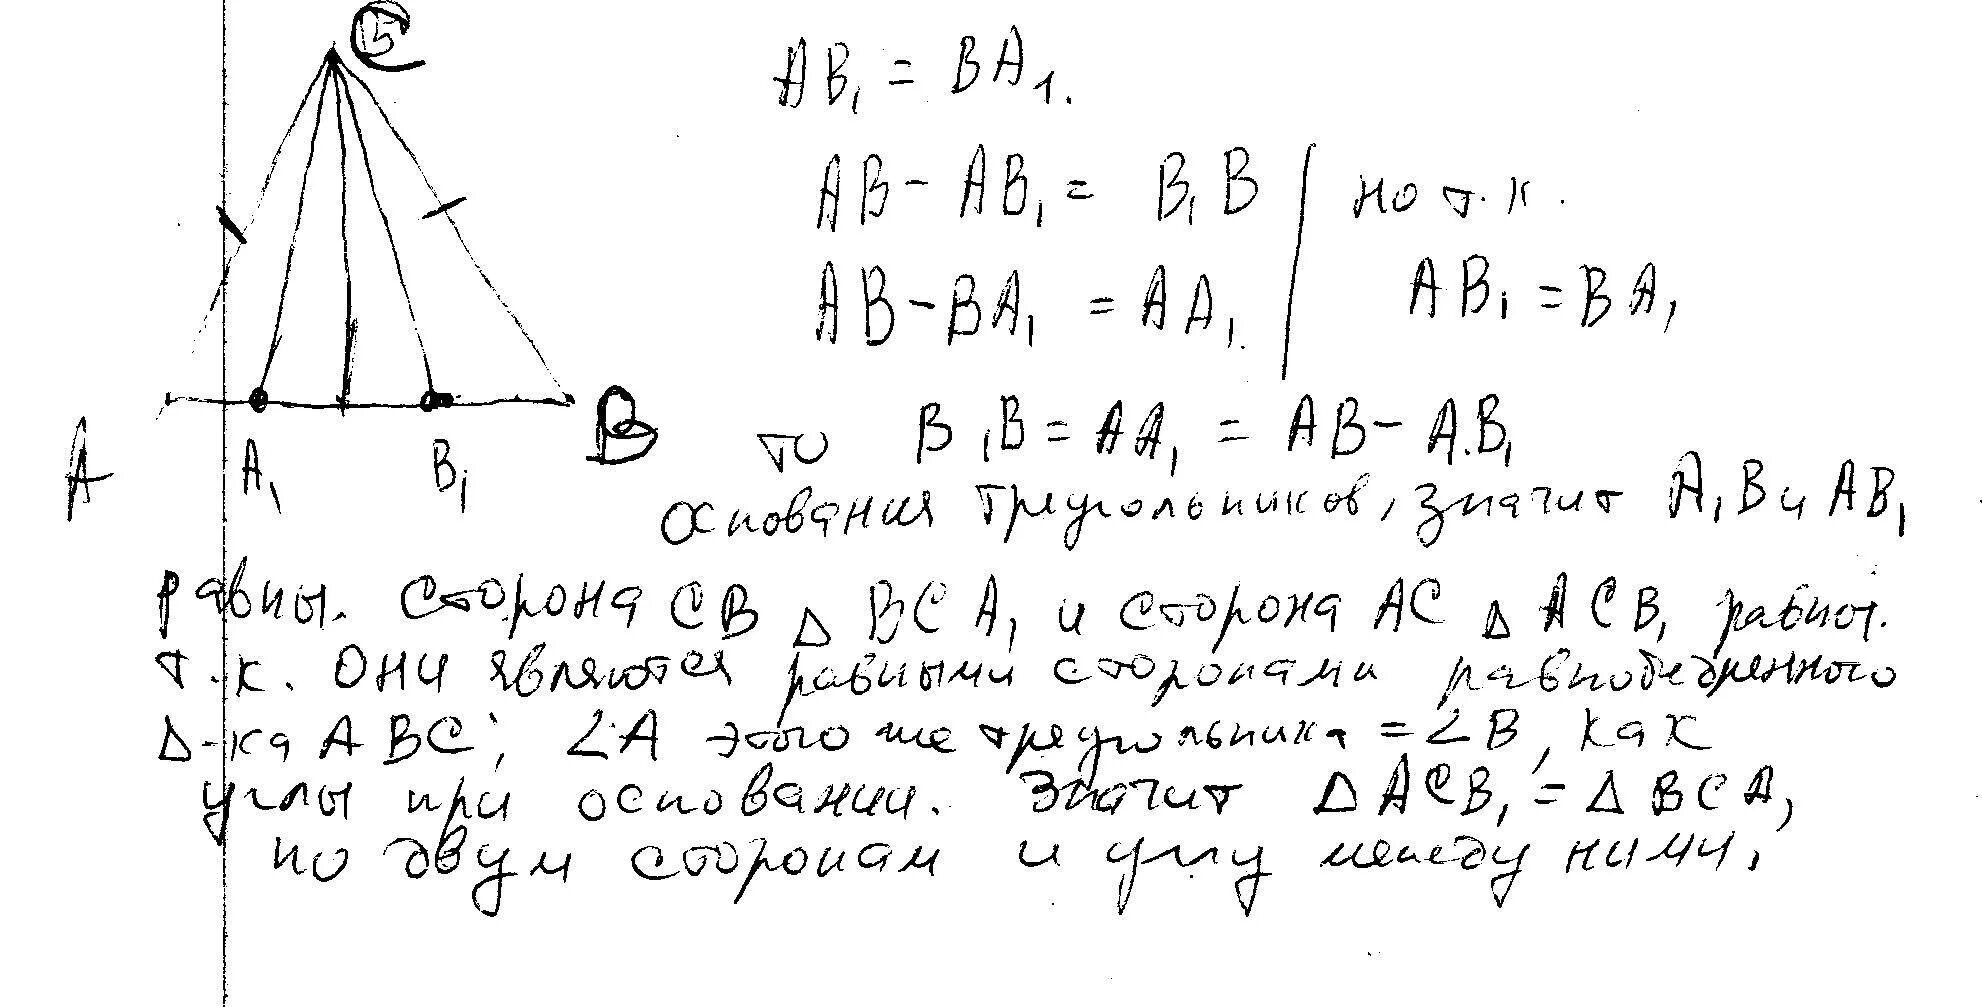 C
AB₁ = BA₁.
AB - AB₁ = B₁B / но т.к.
AB - BA₁ = AA₁. AB₁ = BA₁
A A₁ B₁ B
то B₁B = AA₁ = AB - A.B₁
основания треугольников, значит A₁B и AB₁
равны. сторона CB Δ BCA₁ и сторона AC Δ ACB₁ равны.
т.к. они являются равными сторонами равнобедренного
Δ-ка ABC; ∠A этого же треугольника = ∠B, как
углы при основании. Значит Δ ACB₁ = Δ BCA₁
по двум сторонам и углу между ними.